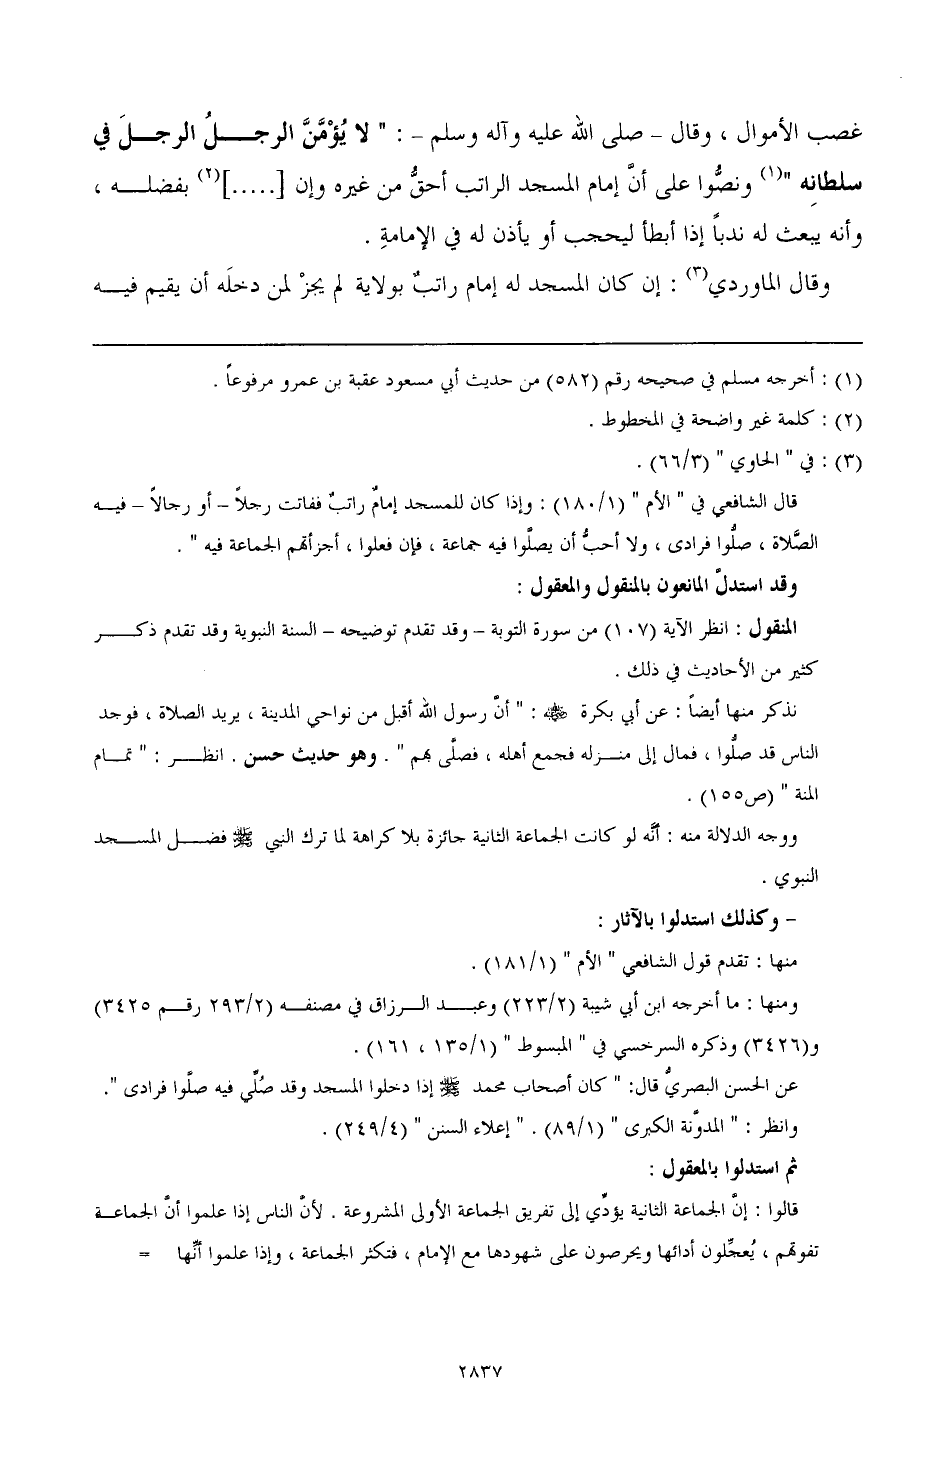 غصب الأموال ، وقال – صلى الله عليه وآله وسلم – : " لا يُؤْمَّنَّ الرجلُ الرجلَ في
سلطانِه "(١) ونصُّوا على أنَّ إمام المسجد الراتب أحقُّ من غيره وإن [.....](٢) بفضله ،
وأنه يبعث له ندباً إذا أبطأ ليحجب أو يأذن له في الإمامةِ .
وقال الماوردي(٣) : إن كان المسجد له إمام راتبٌ بولاية لم يجزْ لمن دخلَه أن يقيم فيه
(١) : أخرجه مسلم في صحيحه رقم (٥٨٢) من حديث أبي مسعود عقبة بن عمرو مرفوعاً .
(٢) : كلمة غير واضحة في المخطوط .
(٣) : في " الحاوي " (٦٦/٣) .
قال الشافعي في " الأم " (١٨٠/١) : وإذا كان للمسجد إمامٌ راتبٌ ففاتت رجلاً – أو رجالاً – فيه
الصَّلاة ، صلُّوا فرادى ، ولا أحبُّ أن يصلَّوا فيه جماعة ، فإن فعلوا ، أجزأتهم الجماعة فيه " .
وقد استدلَّ المانعون بالمنقول والمعقول :
المنقول : انظر الآية (١٠٧) من سورة التوبة – وقد تقدم توضيحه – السنة النبوية وقد تقدم ذكر
كثير من الأحاديث في ذلك .
نذكر منها أيضاً : عن أبي بكرة ﷺ : " أنَّ رسول الله أقبل من نواحي المدينة ، يريد الصلاة ، فوجد
الناس قد صلُّوا ، فمال إلى منزله فجمع أهله ، فصلَّى بهم " . وهو حديث حسن . انظر : " تمام
المنة " (ص١٥٥) .
ووجه الدلالة منه : أنَّه لو كانت الجماعة الثانية جائزة بلا كراهة لما ترك النبي ﷺ فضل المسجد
النبوي .
– وكذلك استدلوا بالآثار :
منها : تقدم قول الشافعي " الأم " (١٨١/١) .
ومنها : ما أخرجه ابن أبي شيبة (٢٢٣/٢) وعبد الرزاق في مصنفه (٢٩٣/٢ رقم ٣٤٢٥)
و(٣٤٢٦) وذكره السرخسي في " المبسوط " (١٣٥/١ ، ١٦١) .
عن الحسن البصريُّ قال: " كان أصحاب محمد ﷺ إذا دخلوا المسجد وقد صُلِّي فيه صلَّوا فرادى ".
وانظر : " المدوَّنة الكبرى " (٨٩/١) . " إعلاء السنن " (٢٤٩/٤) .
ثم استدلوا بالمعقول :
قالوا : إنَّ الجماعة الثانية يؤدِّي إلى تفريق الجماعة الأولى المشروعة . لأنَّ الناس إذا علموا أنَّ الجماعة
تفوتهم ، يُعجِّلون أدائها ويحرصون على شهودها مع الإمام ، فتكثر الجماعة ، وإذا علموا أنَّها =
٢٨٣٧